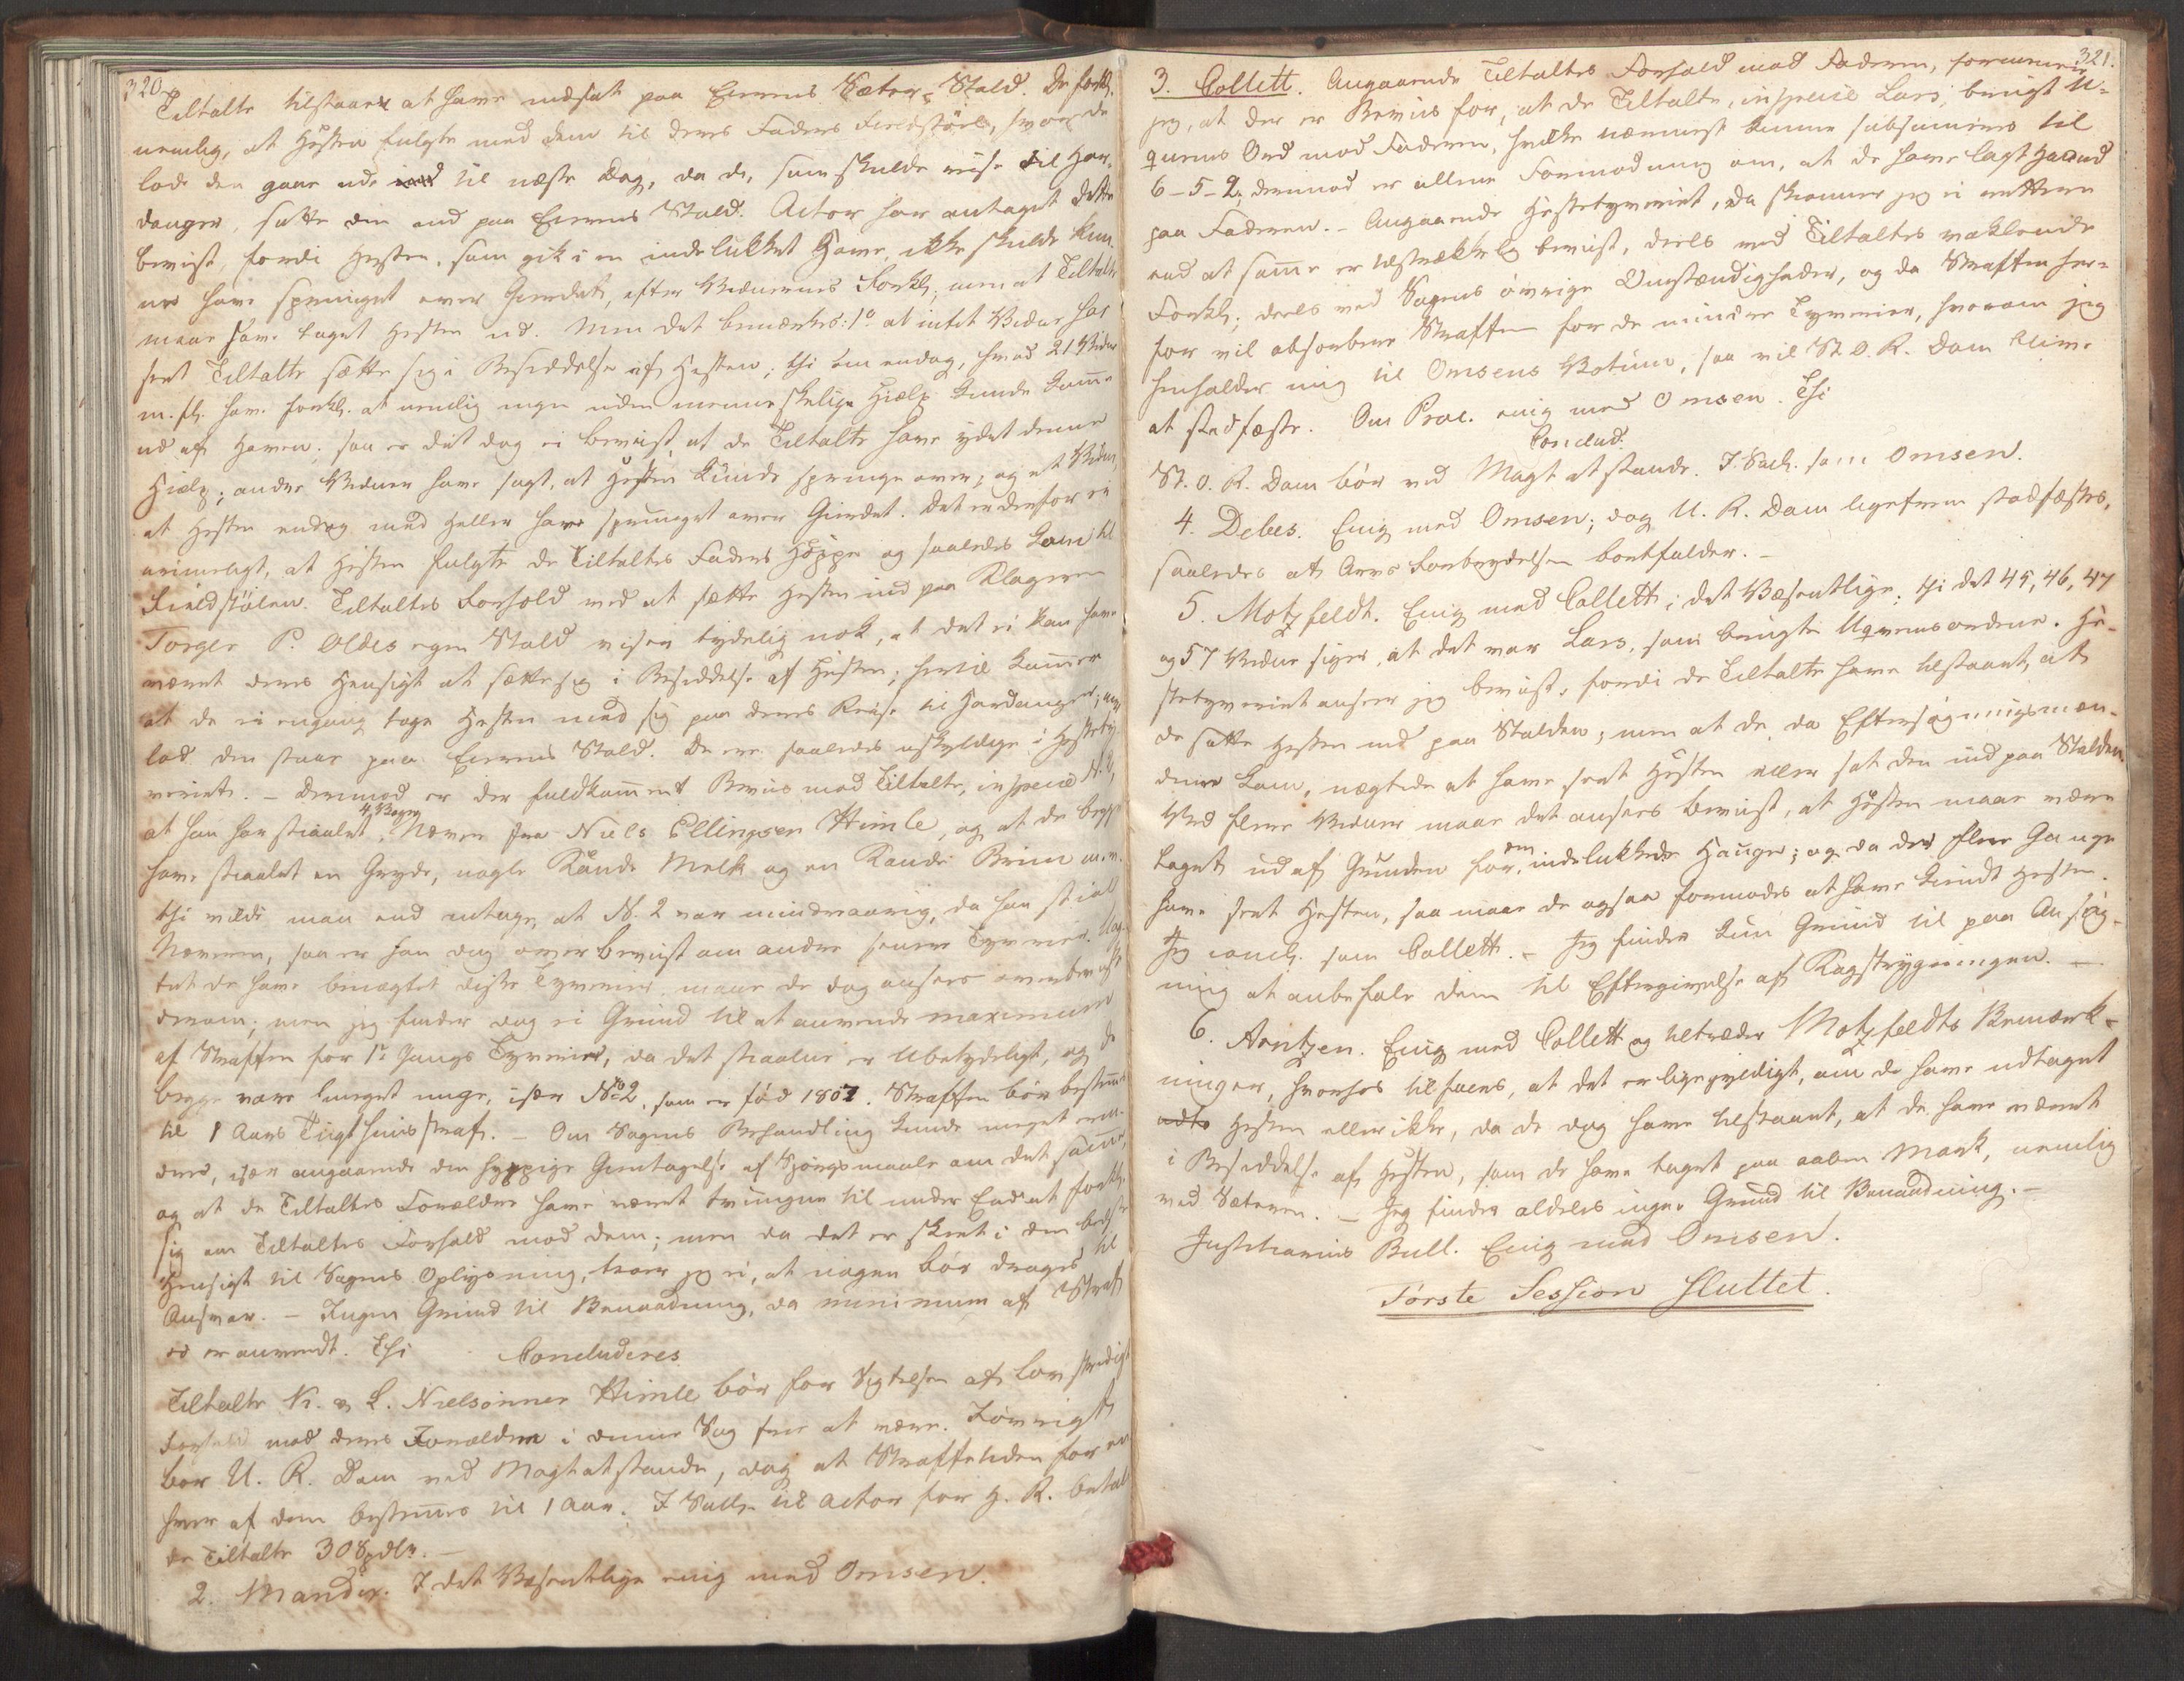 320
Tiltalte tilstaaer at have indsat paa Eierens Sæter-Stald. De forkl.
nemlig, at Hesten fulgte med dem til deres Faders Fieldstöel, hvor de
lode den gaae ude til næste Dag, da de, som skulde reise til Har-
danger, satte den ind paa Eierens Stald. Actor har antaget dette
beviist, fordi Hesten, som gik i en indelukket Have, ikke skulde kun-
ne have sprunget over Gierdet, efter Vidnernes Forkl., men at Tiltalte
maae have taget Hesten ud. Men det bemærkes: 1o at intet Vidne har
seet Tiltalte sætte sig i Besiddelse af Hesten; thi om endog, hvad 21 Vidne
m. fl. have forkl. at nemlig ingen uden menneskelige Hielp kunde komme
ud af Haven, saa er det dog ei beviist, at de Tiltalte have ydet denne
Hielp; andre Vidner have sagt, at Hesten kunde springe over, og et Vidne,
at Hesten endog med Helder have sprunget over Gierdet. Det er derfor ei
urimeligt, at Hesten fulgte de Tiltaltes Faders Hoppe og saaledes kom til
Fieldstölen. Tiltaltes Forhold ved at sætte Hesten ind paa Klageren
Torger P. Oldes egen Stald viser tydelig nok, at det ei kan have
været deres Hensigt at sætte sig i Besiddelse af Hesten; hertil kommer
at de ei engang toge Hesten med sig paa deres Reise til Hardanger, men
lod den staae paa Eierens Stald. De ere saaledes uskyldige i Hestety-
veriet. - Derimod er der fuldkomment Beviis mod Tiltalte, in specie N. 2,
at han har stiaalet 4 Voger Næver fra Niels Ellingsen Himle, og at de begge
have stiaalet en Gryde, nogle Kande Melk og en Kande Brim m.m.
thi vilde man end antage, at N. 2 var mindreaarig, da han stial
Næveren, saa er han dog overbeviist om andre senere Tyverier. Uag-
tet de have benægtet disse Tyverier, maae de dog ansees overbeviiste
derom; men jeg finder dog ei Grund til at anvende maximum
af Straffen for 1ste Gangs Tyverier, da det stiaalne er ubetydeligt, og de
begge vare meget unge, især No 2, som er född 1807. Straffen bör bestemmes
til 1 Aars Tugthuusstraf. - Om Sagens Behandling kunde meget erin-
dres, især angaaende den hyppige Gientagelse af Spörgsmaale om det samme,
og at de Tiltaltes Forældre have været tvungne til under Eed at forkl.
sig om Tiltaltes Forhold mod dem; men da det er skeet i den bedste
Hensigt til Sagens Oplysning, troer jeg ei, at nogen bör drages til
Ansvar. - Ingen Grund til Benaadning, da minimum af Straf
er anvendt. Thi Concluderes
Tiltalte N. & L. Nielsönner Himle bör for Sigtelsen af lovstridigt
Forhold mod deres Forældre i denne Sag frie at være. Iövrigt
bör U. R. Dom ved Magt at stande, dog at Straffetiden for en
hver af dem bestemmes til 1 Aar. I Sallr. til Actor for H. R. betale
de Tiltalte 30 Spdlr. -
2. Mandix. I det Væsentlige enig med Omsen.
321.
3. Collett. Angaaende Tiltaltes Forhold mod Faderen, formener
jeg, at der er Beviis for, at de Tiltalte, in specie Lars, brugt U-
qvems Ord mod Faderen, hvilke nærmest kunne subsumeres til
6-5-2; derimod er allene Formodning om, at de have lagt Haand
paa Faderen. - Angaaende Hestetyveriet, da skiönner jeg ei rettere
end at samme er tilstrækkelig beviist, deels ved Tiltaltes vaklende
Forkl., deels ved Sagens övrige Omstændigheder, og da Straffen her-
for vil absorbere Straffen for de mindre Tyverier, hvorom jeg
henholder mig til Omsens Votum, saa vil St. O. R. Dom blive
at stadfæste. Om Proc. enig med Omsen. Thi
Conclud.
St. O. R. Dom bör ved Magt at stande. I Sall. som Omsen.
4. Debes. Enig med Omsen; dog U. R. Dom ligefrem stadfæstes,
saaledes at Arvs Forbrydelsen bortfalder. -
5. Motzfeldt. Enig med Collett i det Væsentlige; thi det 45, 46, 47
og 57 Vidne siger, at det var Lars, som brugte Uqvemsordene. He-
stetyveriet anseer jeg beviist, fordi de Tiltalte have tilstaaet, at
de satte Hesten ind paa Stalden; men at de, da Eftersögningsmæn-
dene kom, nægtede at have seet Hesten eller sat den ind paa Stalden.
Ved flere Vidner maae det ansees beviist, at Hesten maae være
taget ud af Grinden for den indelukkede Hauge; og da de flere Gange
have seet Hesten, saa maae de ogsaa formodes at have kiendt Hesten.
Jeg concl. som Collett. - Jeg finder kun Grund til paa Ansög-
ning at anbefale dem til Eftergivelse af Kagstrygningen. -
6. Arntzen. Enig med Collett og tiltræder Motzfeldts Bemærk-
ninger, hvorhos tilföies, at det er ligegyldigt, om de have udtaget
Hesten eller ikke, da de dog have tilstaaet, at de have været
i Besiddelse af Hesten, som de have taget paa aaben Mark, nemlig
ved Sæteren. - Jeg finder aldeles ingen Grund til Benaadning. -
Justitiarius Bull. Enig med Omsen.
Förste Session sluttet.